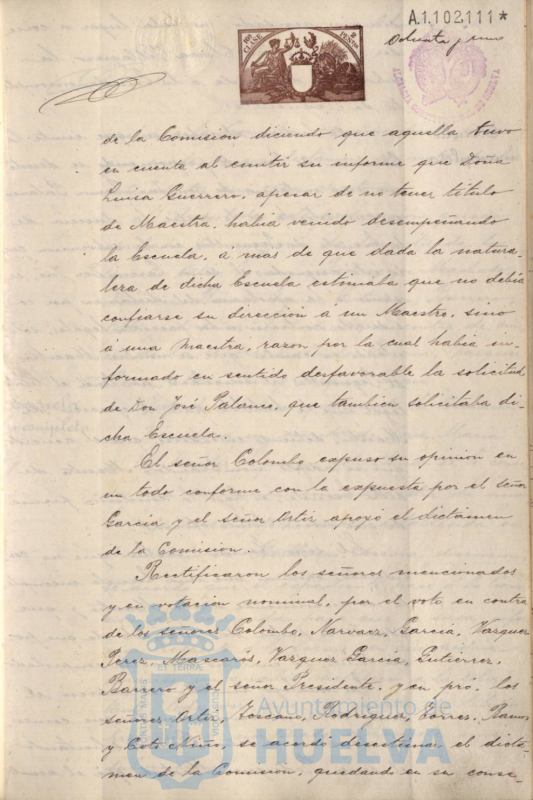 A.1.102.111*
Ochenta y uno
de la Comision diciendo que aquella tuvo
en cuenta al emitir su informe que Doña
Luisa Guerrero, apesar de no tener titulo
de Maestra, habia venido desempeñando
la Escuela, á mas de que dada la natura-
leza de dicha Escuela estimaba que no debia
confiarse su dirección á un Maestro, sino
á una maestra, razon por la cual habia in-
formado en sentido desfavorable la solicitud
de Don José Palanco, que tambien solicitaba di-
cha Escuela.
El señor Colombo expuso su opinion en
un todo conforme con la expuesta por el señor
Garcia y el señor Ortiz apoyó el dictámen
de la Comision.
Rectificaron los señores mencionados
y en votacion nominal, por el voto en contra
de los señores Colombo, Narvaez, Garcia, Vazquez
Perez, Mascarós, Vazquez Garcia, Gutierrez,
Barrero y el señor Presidente, y en pró, los
señores Ortiz, Toscano, Rodriguez, Torres, Ramos
y Coto Mino, se acordó desestimar el dictá-
men de la Comision, quedando en su conse-
Ayuntamiento de
HUELVA